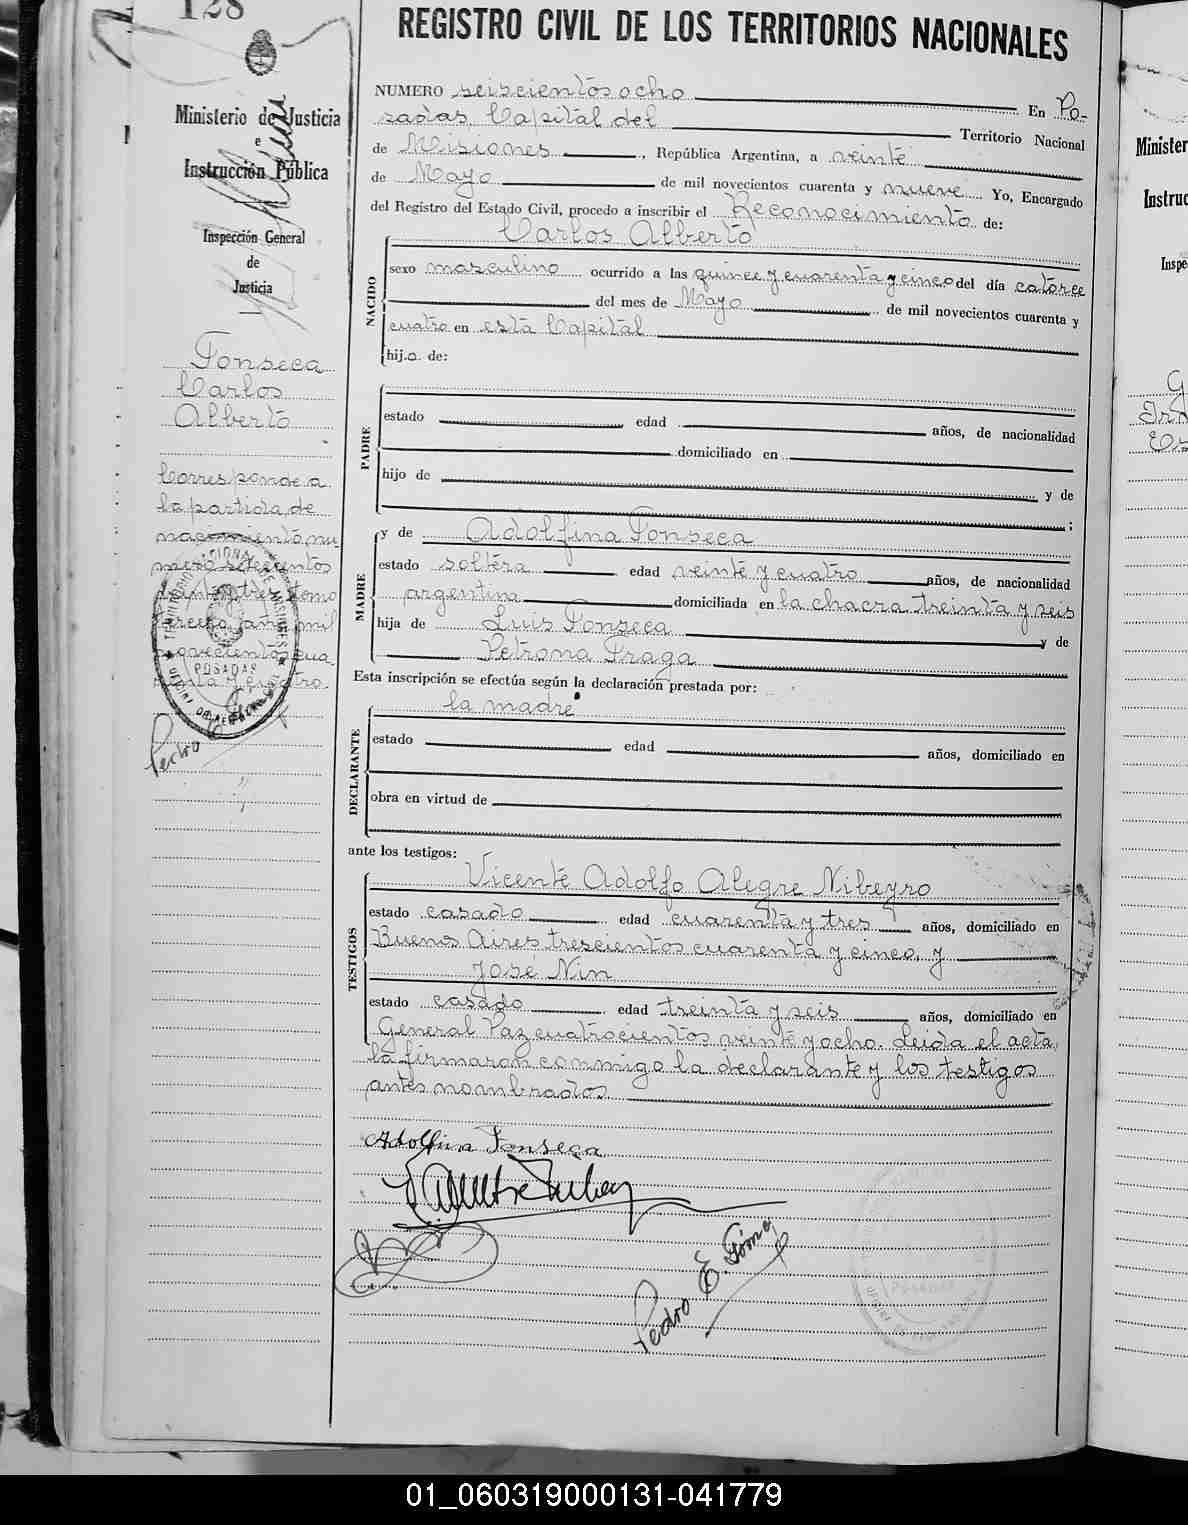 128
REGISTRO CIVIL DE LOS TERRITORIOS NACIONALES
Ministerio de Justicia
e
Instrucción Pública
Inspección General
de
Justicia
Fonseca
Carlos
Alberto
Corresponde a
la partida de
nacimiento nu-
mero setecientos
treinta y tres, tomo
tercero, año mil
novecientos cua-
renta y cuatro.
POSADAS
Pedro E. Gómez
NUMERO seiscientos ocho En Po-
sadas, Capital del Territorio Nacional
de Misiones, República Argentina, a veinte
de Mayo de mil novecientos cuarenta y nueve. Yo, Encargado
del Registro del Estado Civil, procedo a inscribir el Reconocimiento de:
Carlos Alberto
NACIDO
sexo masculino ocurrido a las quince y cuarenta y cinco del día catorce
del mes de Mayo de mil novecientos cuarenta y
cuatro en esta Capital
hijo de:
PADRE
estado edad años, de nacionalidad
domiciliado en
hijo de y de
;
MADRE
y de Adolfina Fonseca
estado soltera edad veinte y cuatro años, de nacionalidad
argentina domiciliada en la chacra treinta y seis
hija de Luis Fonseca y de
Petrona Fraga
Esta inscripción se efectúa según la declaración prestada por:
DECLARANTE
la madre
estado edad años, domiciliado en
obra en virtud de
ante los testigos:
TESTIGOS
Vicente Adolfo Alegre Nibeyro
estado casado edad cuarenta y tres años, domiciliado en
Buenos Aires trescientos cuarenta y cinco, y
José Nin
estado casado edad treinta y seis años, domiciliado en
General Paz cuatrocientos veinte y ocho. Leida el acta,
la firmaron conmigo la declarante y los testigos
antes nombrados.
Adolfina Fonseca
Pedro E. Gómez
Posadas
Minister
Instruc
Inspe
01_060319000131-041779